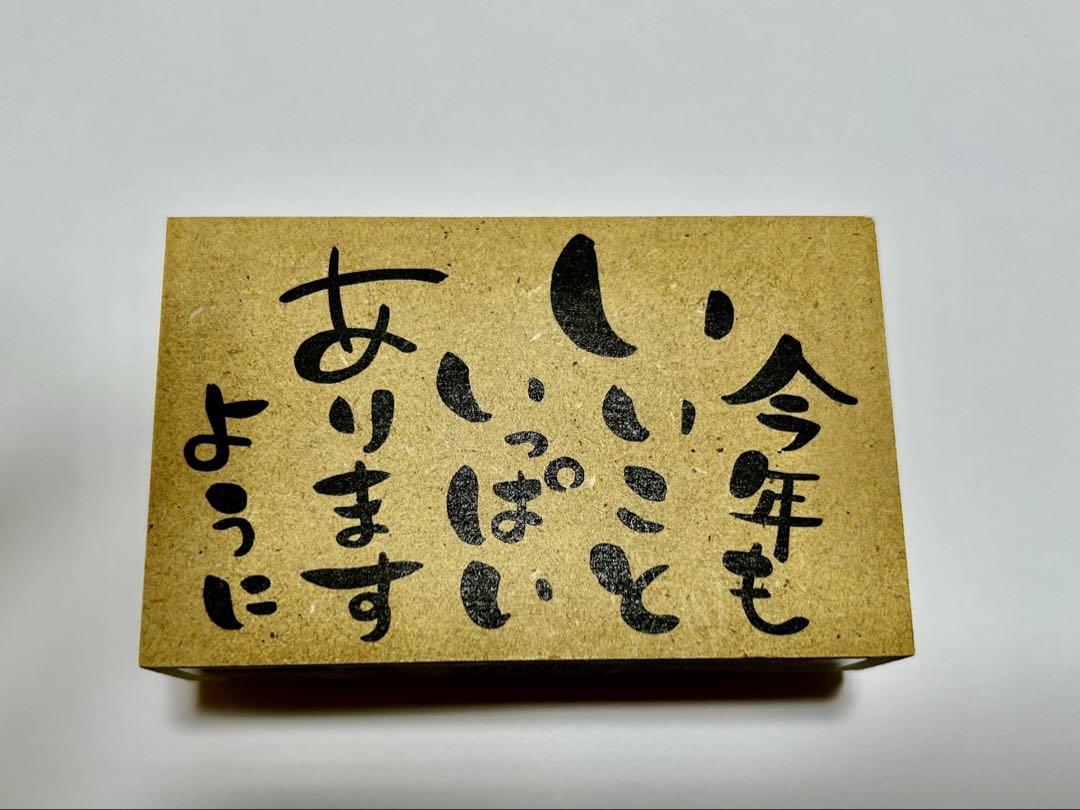 今年も
いいこと
いっぱい
あります
ように